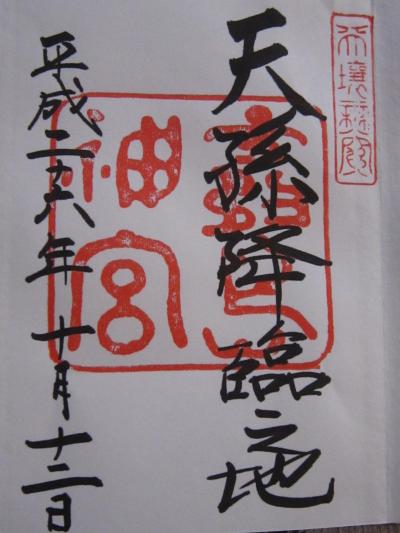 天孫降臨之地
神宮
平成二十六年十月十二日